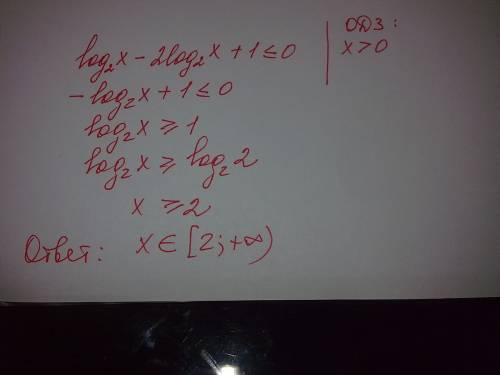 log₂x - 2log₂x + 1 ≤ 0
- log₂x + 1 ≤ 0
log₂x ≥ 1
log₂x ≥ log₂2
x ≥ 2
Ответ: x ∈ [2; +∞)
ОДЗ:
x > 0